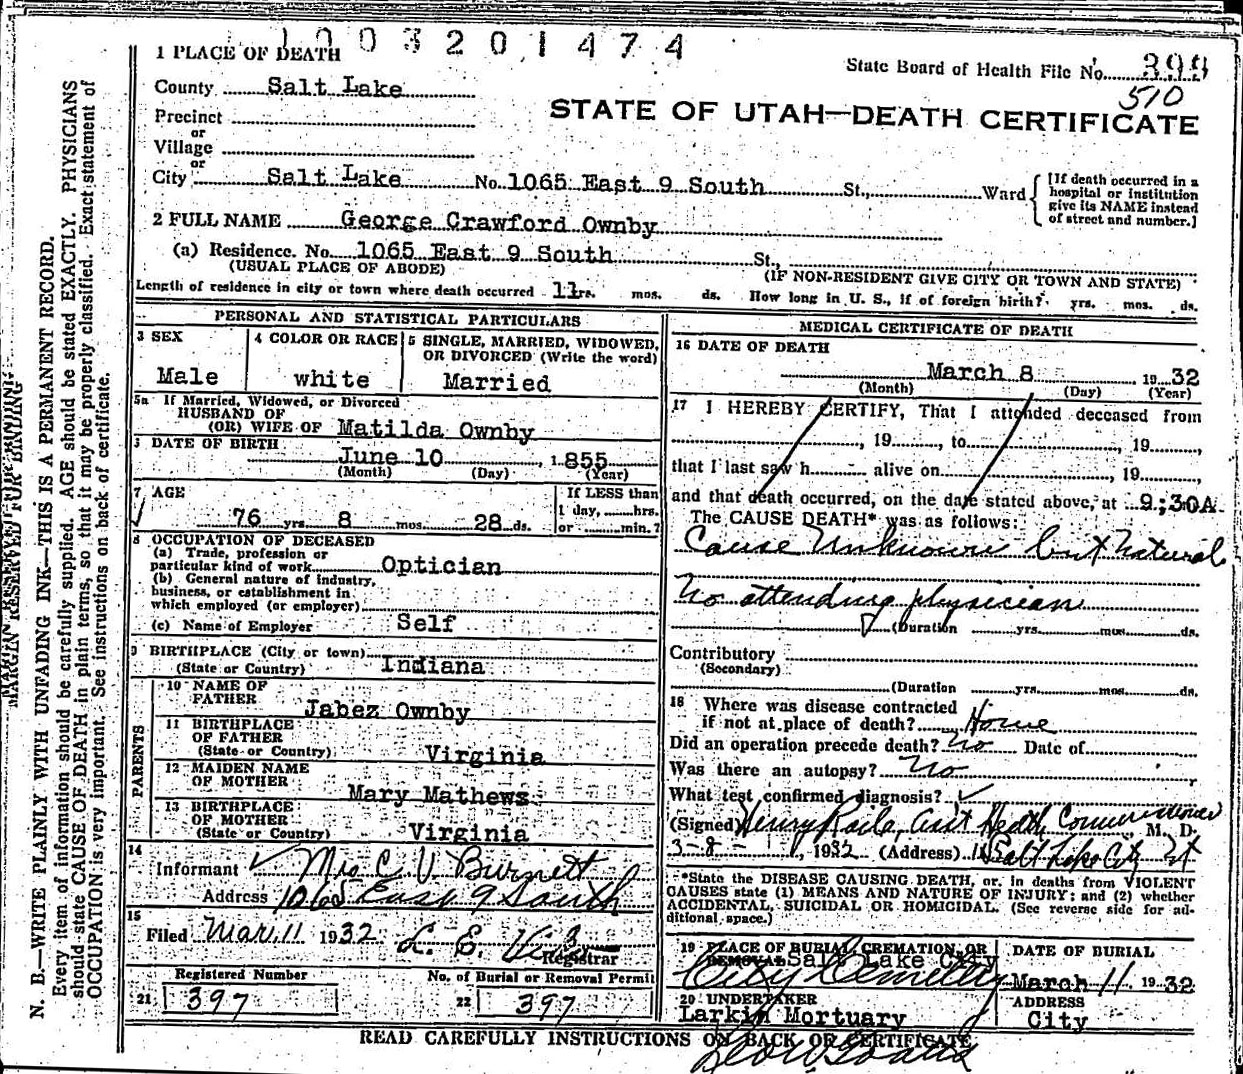 1003201474
1 PLACE OF DEATH
State Board of Health File No. 399
510
County Salt Lake
STATE OF UTAH—DEATH CERTIFICATE
Precinct
or
Village
or
City Salt Lake No. 1065 East 9 South St., Ward
[If death occurred in a
hospital or institution
give its NAME instead
of street and number.]
2 FULL NAME George Crawford Ownby
(a) Residence. No. 1065 East 9 South St.,
(USUAL PLACE OF ABODE) (IF NON-RESIDENT GIVE CITY OR TOWN AND STATE)
Length of residence in city or town where death occurred 11 yrs. mos. ds. How long in U. S., if of foreign birth? yrs. mos. ds.
PERSONAL AND STATISTICAL PARTICULARS
3 SEX
Male
4 COLOR OR RACE
white
5 SINGLE, MARRIED, WIDOWED,
OR DIVORCED (Write the word)
Married
5a If Married, Widowed, or Divorced
HUSBAND OF
(OR) WIFE OF Matilda Ownby
DATE OF BIRTH
June 10, 1855
(Month) (Day) (Year)
7 AGE
76 yrs. 8 mos. 28 ds.
If LESS than
1 day, hrs.
or min.?
8 OCCUPATION OF DECEASED
(a) Trade, profession or
particular kind of work Optician
(b) General nature of industry,
business, or establishment in
which employed (or employer)
(c) Name of Employer Self
9 BIRTHPLACE (City or town)
(State or Country) Indiana
PARENTS
10 NAME OF
FATHER Jabez Ownby
11 BIRTHPLACE
OF FATHER
(State or Country) Virginia
12 MAIDEN NAME
OF MOTHER Mary Mathews
13 BIRTHPLACE
OF MOTHER
(State or Country) Virginia
14
Informant Mrs C V Burnett
Address 1065 East 9 South
15
Filed Mar. 11 1932 L. E.
Registrar
Registered Number
21 397
No. of Burial or Removal Permit
22 397
MEDICAL CERTIFICATE OF DEATH
16 DATE OF DEATH
March 8 1932
(Month) (Day) (Year)
17 I HEREBY CERTIFY, That I attended deceased from
, 19 , to , 19 ,
that I last saw h alive on , 19 ,
and that death occurred, on the date stated above, at 9:30A
The CAUSE DEATH* was as follows:
Cause Unknown but natural
No attending physician
(Duration yrs. mos. ds.
Contributory
(Secondary)
(Duration yrs. mos. ds.
18 Where was disease contracted
if not at place of death? Home
Did an operation precede death? No Date of
Was there an autopsy? No
What test confirmed diagnosis? ✓
(Signed) Henry Raile, Asst Health Commissioner, M. D.
3-8-, 1932 (Address) Salt Lake City Ut
*State the DISEASE CAUSING DEATH, or, in deaths from VIOLENT
CAUSES state (1) MEANS AND NATURE OF INJURY; and (2) whether
ACCIDENTAL, SUICIDAL OR HOMICIDAL. (See reverse side for ad-
ditional space.)
19 PLACE OF BURIAL, CREMATION, OR
REMOVAL Salt Lake City
City Cemetery
DATE OF BURIAL
March 11, 1932
20 UNDERTAKER
Larkin Mortuary
ADDRESS
City
READ CAREFULLY INSTRUCTIONS ON BACK OF CERTIFICATE
MARGIN RESERVED FOR BINDING
N. B.—WRITE PLAINLY WITH UNFADING INK—THIS IS A PERMANENT RECORD.
Every item of information should be carefully supplied. AGE should be stated EXACTLY. PHYSICIANS
should state CAUSE OF DEATH in plain terms, so that it may be properly classified. Exact statement of
OCCUPATION is very important. See instructions on back of certificate.